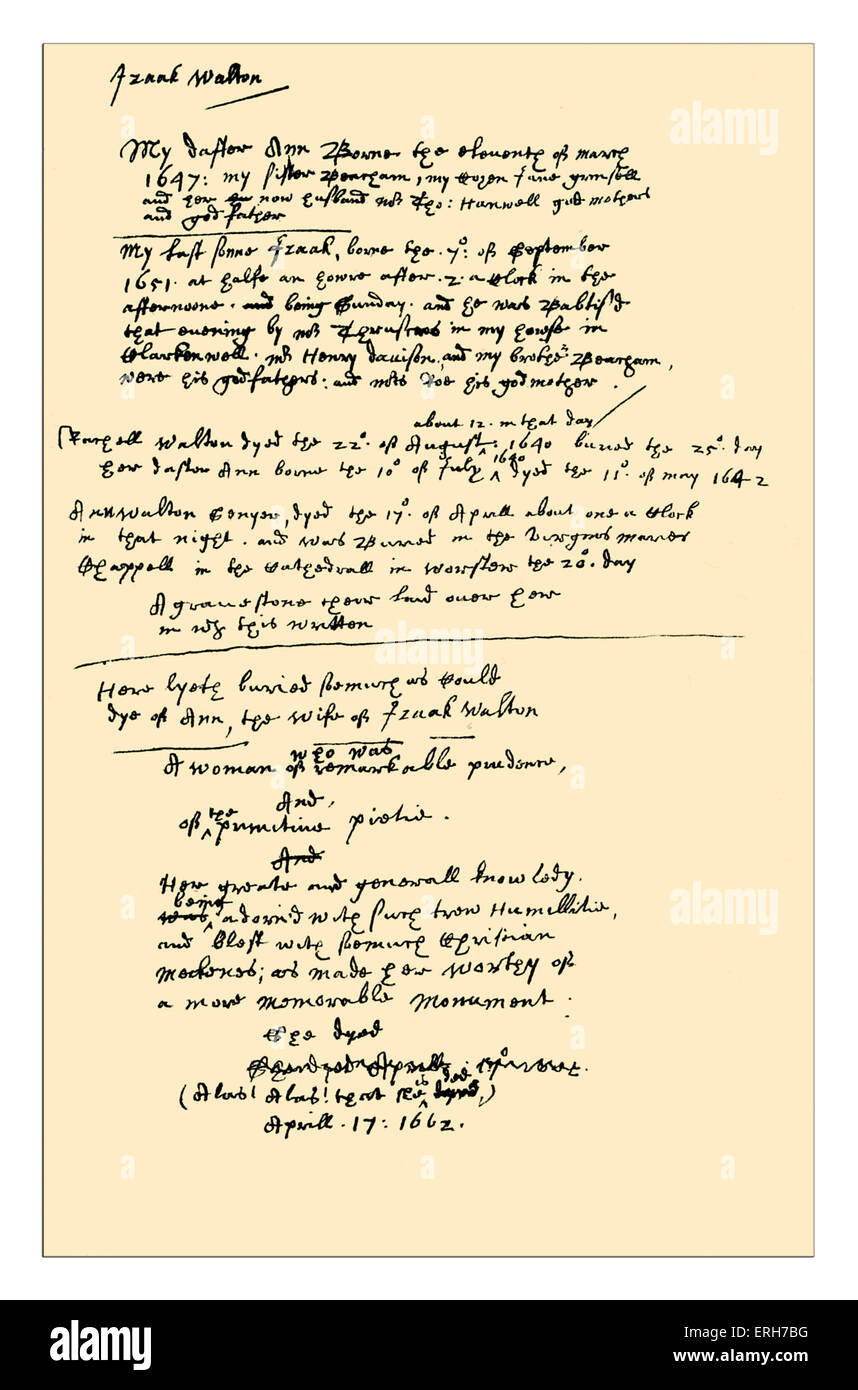 Izaak Walton
My dafter Ann Borne the eleventh of march
1647: my sister Beacham, my Cozen Jane grinsell
and her now husband mr Tho: Hanwell god mothers
and god father
My last sonne Izaak, borne the .7º: of September
1651. at halfe an howre after .2. a Clock in the
afternoone. and being Sunday. and he was Baptis'd
that evening by mr Thruscros in my howse in
Clarkenwell. mr Henry davison, and my brother Beacham,
were his godfathers: and mrs Roe his godmother.
about 12. in that day
Rachell Walton dyed the 22º. of August: 1640 buried the 25º. day
her dafter Ann borne the 10º of July 1640 dyed the 11º. of may 1642
Ann Walton Senyer, dyed the 17º. of Aprill about one a Clock
in that night. and was Buried in the Virgins maries
Chappell in the Cathedrall in Worster the 20º. day
A gravestone there laid over her
in wh this written
Here lyeth buried somuch as Could
dye of Ann, the Wife of Izaak Walton
who was
A woman of remarkable prudence,
And,
of the primitive pietie.
And
Her greate and generall knowledg.
being
was adorn'd with such trew Humillitie,
and blest with somuch Christian
meekenes; as made her worthy of
a more memorable Monument.
She dyed
(Alas! Alas! that she is ded)
Aprill. 17: 1662.
alamy
a
alamy
a
alamy
a
alamy
ERH7BG
www.alamy.com